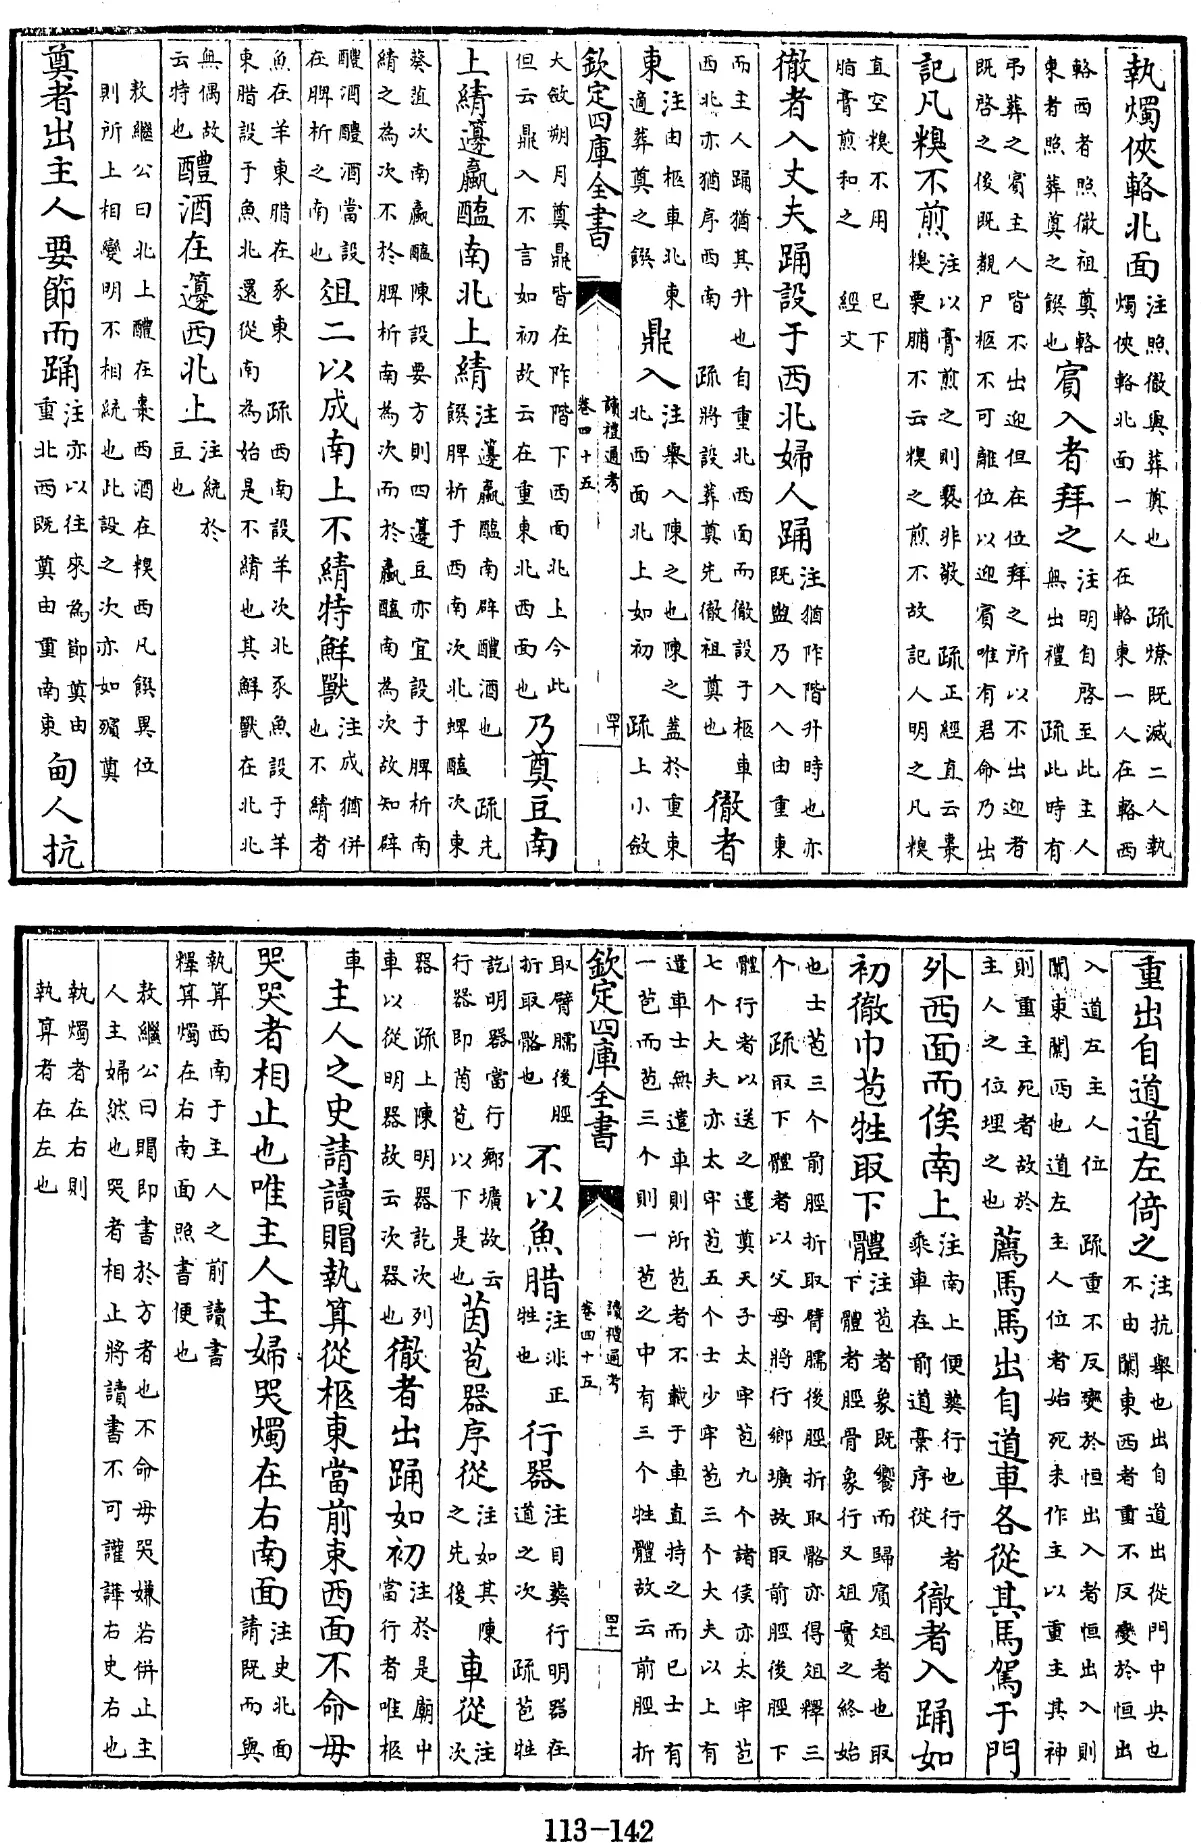 執燭俠輅北面注照徹與葬奠也　疏燎既滅二人執燭俠輅北面一人在輅東一人在輅西
輅西者照徹祖奠輅東者照葬奠之饌也賓入者拜之注明自啓至此主人無出禮　疏此時有
弔葬之賓主人皆不出迎但在位拜之所以不出迎者既啓之後既覩尸柩不可離位以迎賓唯有君命乃出
記凡糗不煎注以膏煎之則褻非敬　疏正經直云棗糗栗脯不云糗之煎不故記人明之凡糗
直空糗不用脂膏煎和之　已下經文
徹者入丈夫踊設于西北婦人踊注猶阼階升時也亦既盥乃入入由重東
而主人踊猶其升也自重北西面而徹設于柩車西北亦猶序西南　疏將設葬奠先徹祖奠也徹者
東注由柩車北東適葬奠之饌鼎入注舉入陳之也陳之蓋於重東北西面北上如初　疏上小斂
欽定四庫全書　讀禮通考　卷四十五　四十
大斂朔月奠鼎皆在阼階下西面北上今此但云鼎入不言如初故云在重東北西面也乃奠豆南
上綪籩蠃醢南北上綪注籩蠃醢南辟醴酒也　疏先饌脾析于西南次北蜱醢次東
葵菹次南蠃醢陳設要方則四籩豆亦宜設于脾析南綪之為次不於脾析南為次而於蠃醢南為次故知辟
醴酒醴酒當設在脾析之南也俎二以成南上不綪特鮮獸注成猶併也不綪者
魚在羊東腊在豕東　疏西南設羊次北豕魚設于羊東腊設于魚北還從南為始是不綪也其鮮獸在北北
無偶故云特也醴酒在籩西北上注統於豆也
敖繼公曰北上醴在棗西酒在糗西凡饌異位則所上相變明不相統也此設之次亦如殯奠
奠者出主人要節而踊注亦以往來為節奠由重北西既奠由重南東甸人抗
重出自道道左倚之注抗舉也出自道出從門中央也不由闑東西者重不反變於恒出
入道左主人位　疏重不反變於恒出入者恒出入則闑東闑西也道左主人位者始死未作主以重主其神
則重主死者故於主人之位埋之也薦馬馬出自道車各從其馬駕于門
外西面而俟南上注南上便葬行也行者乘車在前道槀序從徹者入踊如
初徹巾苞牲取下體注苞者象既饗而歸賓俎者也取下體者脛骨象行又俎實之終始
也士苞三个前脛折取臂臑後脛折取骼亦得俎釋三个　疏取下體者以父母將行鄉壙故取前脛後脛下
體行者以送之遣奠天子太牢苞九个諸侯亦太牢苞七个大夫亦太牢苞五个士少牢苞三个大夫以上有
遣車士無遣車則所苞者不載于車直持之而已士有一苞而苞三个則一苞之中有三个牲體故云前脛折
欽定四庫全書　讀禮通考　卷四十五　四十一
取臂臑後脛折取骼也不以魚腊注非正牲也行器注目葬行明器在道之次　疏苞牲
訖明器當行鄉壙故云行器即茵苞以下是也茵苞器序從注如其陳之先後車從注次
器　疏上陳明器訖次列車以從明器故云次器也徹者出踊如初注於是廟中當行者唯柩
車主人之史請讀賵執算從柩東當前束西面不命毋
哭哭者相止也唯主人主婦哭燭在右南面注史北面請既而與
執算西南于主人之前讀書釋算燭在右南面照書便也
敖繼公曰賵即書於方者也不命毋哭嫌若併止主人主婦然也哭者相止將讀書不可讙譁右史右也
執燭者在右則執算者在左也
113-142